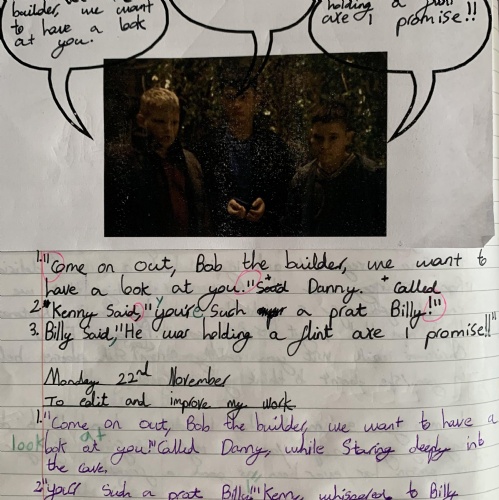 builder, we want
to have a look
at you.
holding a flint
axe I promise!!
1. "Come on out, Bob the builder, we want to
have a look at you." Said Danny. + called
2. "Kenny Said, "you're such a prat Billy!"
3. Billy said, "He was holding a flint axe I promise!!"
Monday 22nd November
To edit and improve my work
1. "Come on out, Bob the builder, we want to have a
look at
look at you!" Called Danny, while Staring deeply into
the cave.
2. "your such a prat Billy" Kenny whispered to Billy